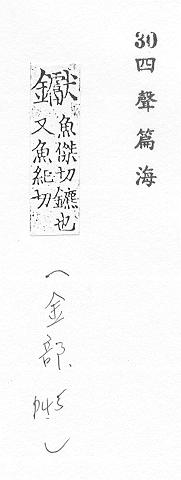 30 四聲篇海
钀
魚傑切鑣也
又魚紀切
(金部.